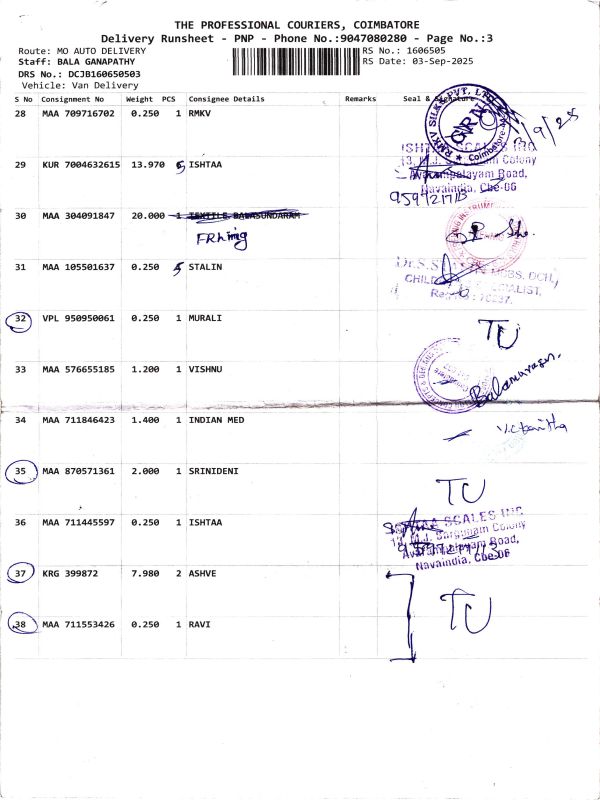 THE PROFESSIONAL COURIERS, COIMBATORE
Delivery Runsheet - PNP - Phone No.:9047080280 - Page No.:3
Route: MO AUTO DELIVERY RS No.: 1606505
Staff: BALA GANAPATHY RS Date: 03-Sep-2025
DRS No.: DCJB160650503
Vehicle: Van Delivery
S No Consignment No Weight PCS Consignee Details Remarks Seal & Signature
28 MAA 709716702 0.250 1 RMKV
RMKV SILKS PVT. LTD. Coimbatore
3/9/25
29 KUR 7004632615 13.970 5 ISHTAA
ISHTAA SCALES INC
13, M.J. Colony
Avarampalayam Road,
Navaindia, Cbe-06
30 MAA 304091847 20.000 1 TEXTILE BALASUNDARAM
31 MAA 105501637 0.250 STALIN
Dr.S.S
CHILD SPECIALIST,
32 VPL 950950061 0.250 1 MURALI
TU
33 MAA 576655185 1.200 1 VISHNU
34 MAA 711846423 1.400 1 INDIAN MED
35 MAA 870571361 2.000 1 SRINIDENI
TU
36 MAA 711445597 0.250 1 ISHTAA
ISHTAA SCALES INC
13, M.J. Sargunam Colony
Avarampalayam Road,
Navaindia, Cbe-06
37 KRG 399872 7.980 2 ASHVE
TU
38 MAA 711553426 0.250 1 RAVI